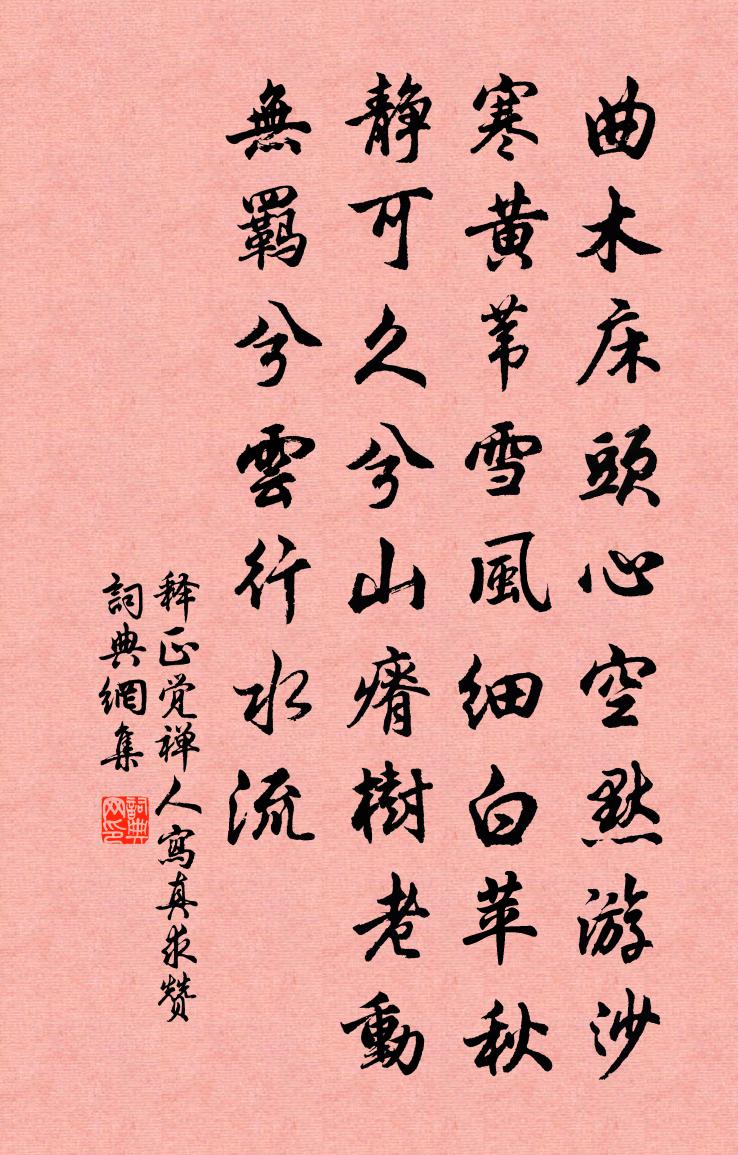 曲木床頭心空默游沙
寒黄苇雪風细白苹秋
静可久兮山瘠樹老動
無羈兮雲行水流
释正觉禅人寫真求赞
詞典網集
詞典网印